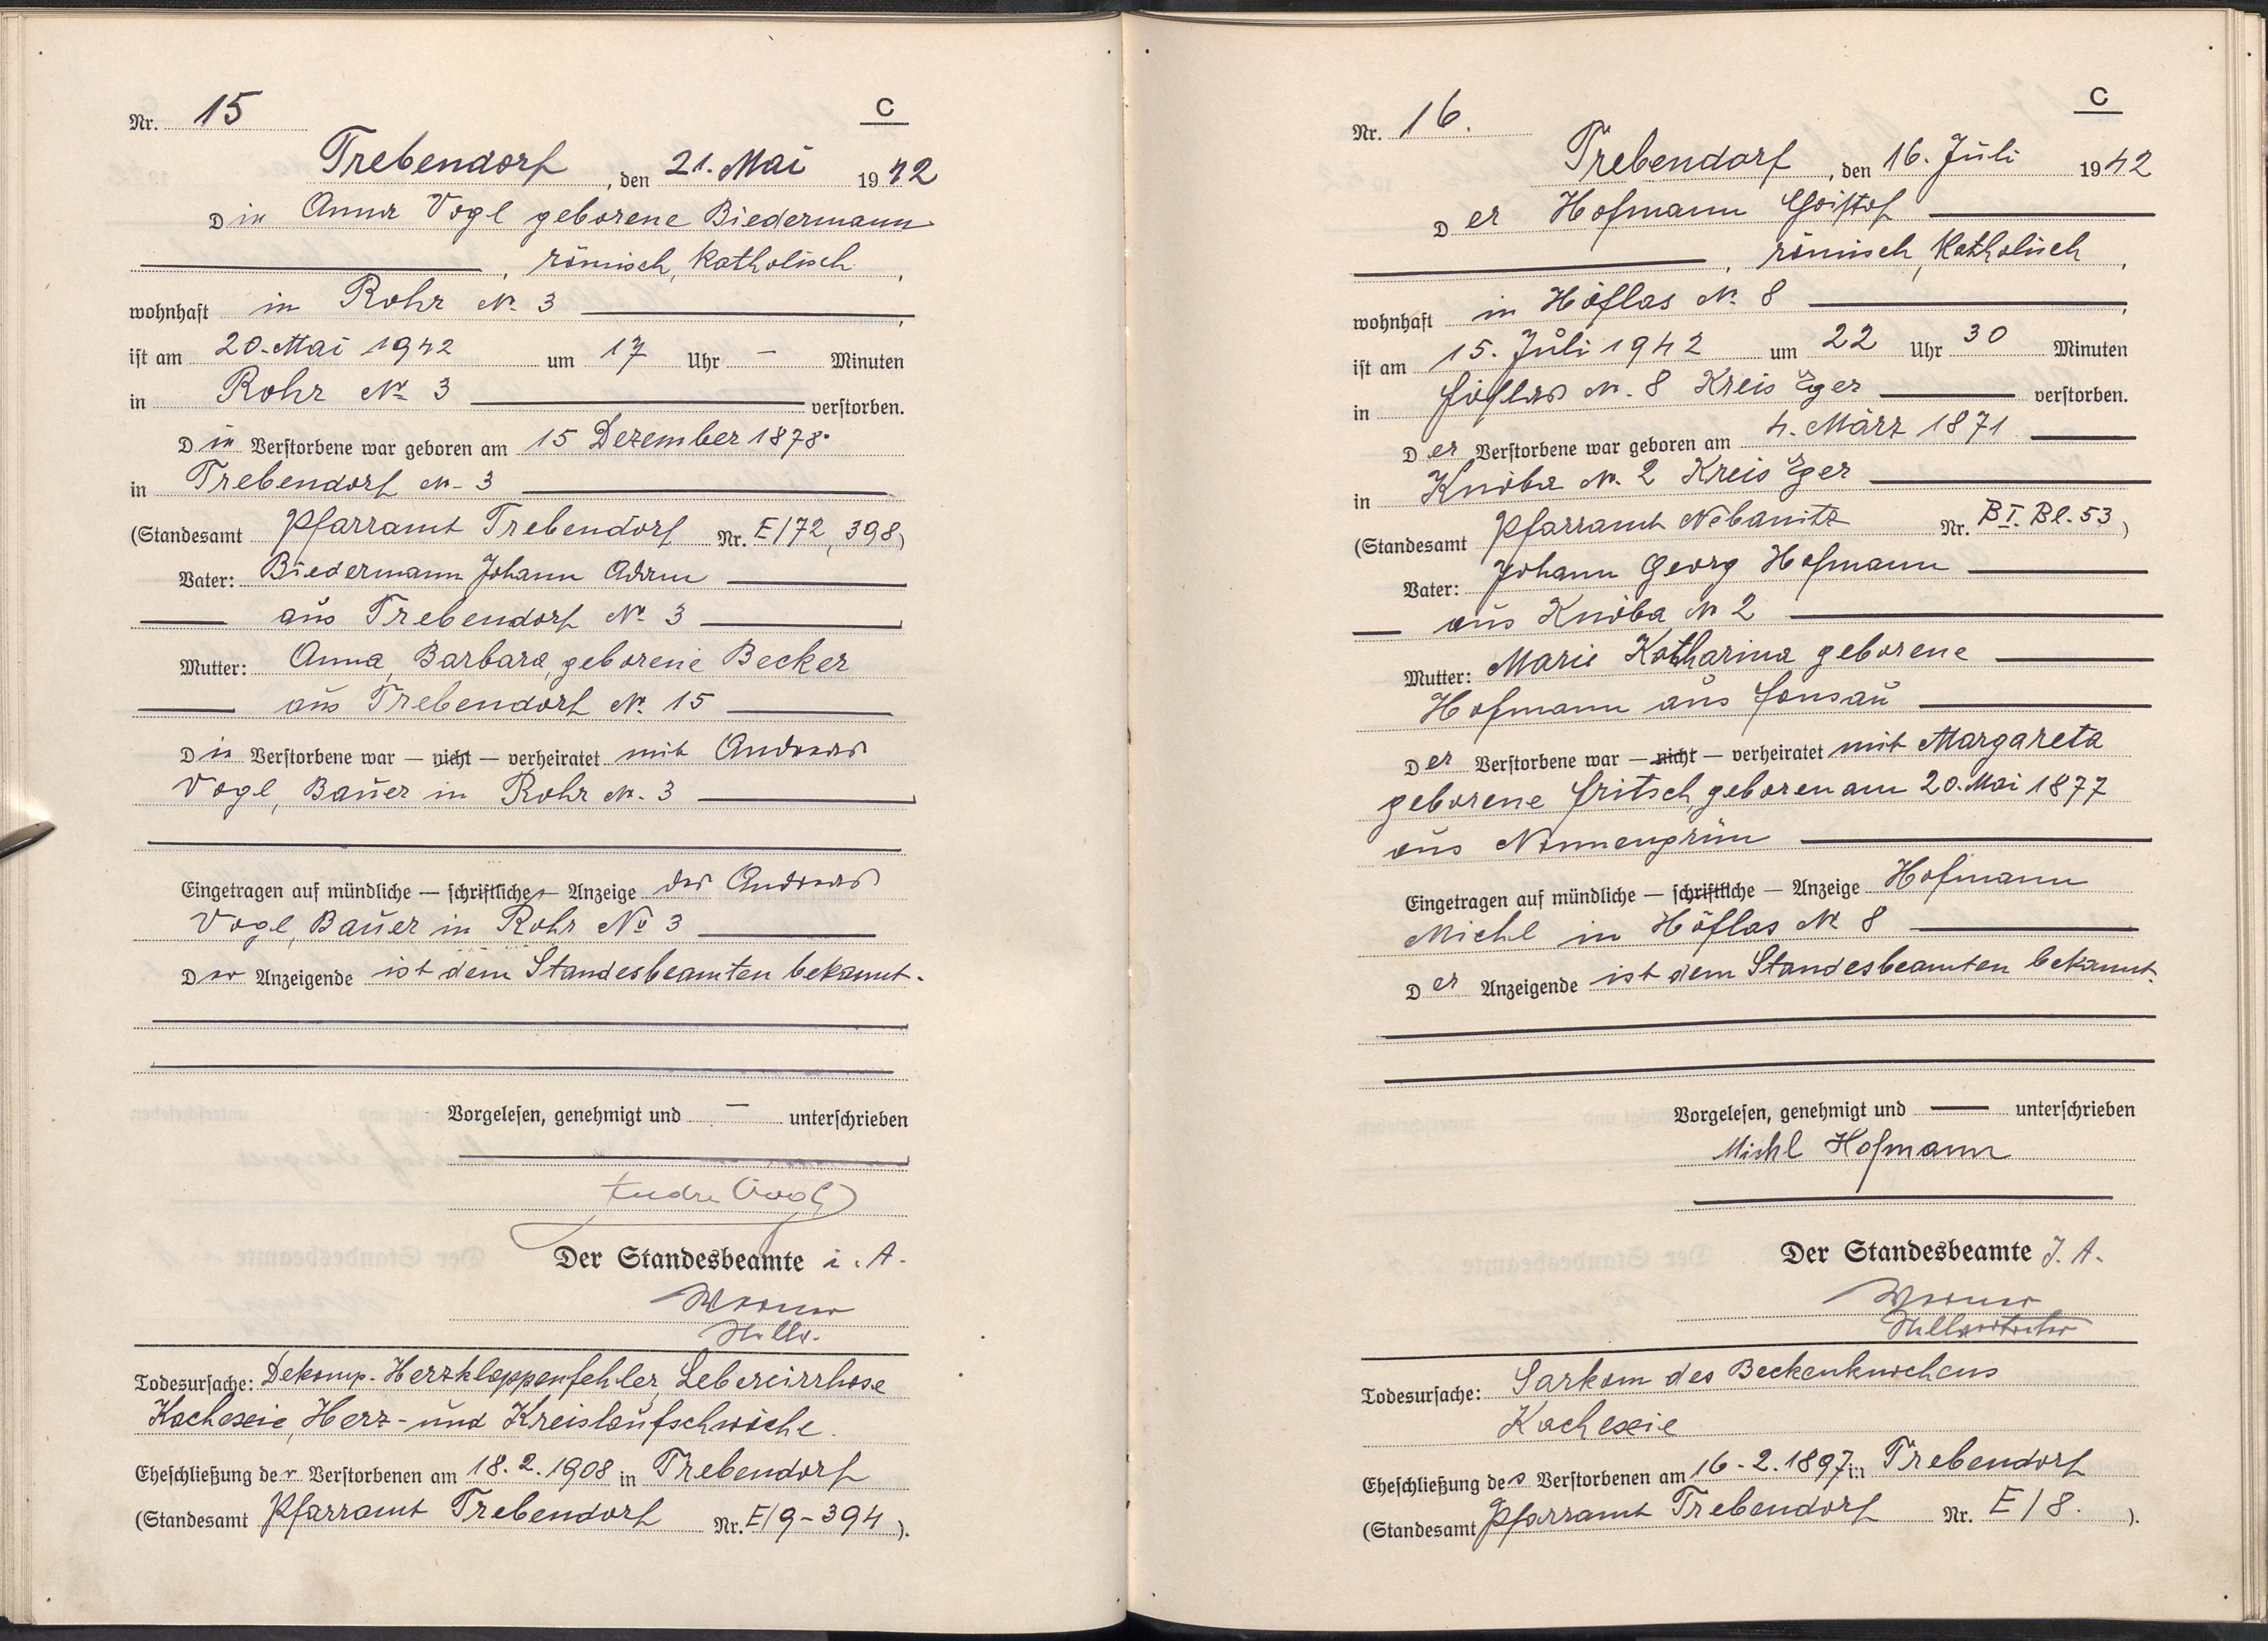 Nr. 15
C
Trebendorf, den 21. Mai 1942
Die Anna Vogl geborene Biedermann
, römisch, katholisch,
wohnhaft in Rohr N. 3
ist am 20. Mai 1942 um 17 Uhr — Minuten
in Rohr N. 3 verstorben.
Die Verstorbene war geboren am 15 Dezember 1878.
in Trebendorf N. 3
(Standesamt Pfarramt Trebendorf Nr. E/72, 398)
Vater: Biedermann Johann Adam
aus Trebendorf No 3
Mutter: Anna, Barbara, geborene Becker
aus Trebendorf N. 15
Die Verstorbene war — nicht — verheiratet mit Andreas
Vogl, Bauer in Rohr N. 3
Eingetragen auf mündliche — schriftliche — Anzeige des Andreas
Vogl, Bauer in Rohr No 3
Der Anzeigende ist dem Standesbeamten bekannt.
Vorgelesen, genehmigt und — unterschrieben
Der Standesbeamte i. A.
Werner
Todesursache: Dekomp. Herzklappenfehler, Lebercirrhose
Kachexie, Herz- und Kreislaufschwäche.
Eheschließung der Verstorbenen am 18. 2. 1908 in Trebendorf
(Standesamt Pfarramt Trebendorf Nr. E/9-394).
Nr. 16.
C
Trebendorf, den 16. Juli 1942
Der Hofmann Christof
, römisch, katholisch,
wohnhaft in Höflas N. 8
ist am 15. Juli 1942 um 22 Uhr 30 Minuten
in Höflas N. 8 Kreis Eger verstorben.
Der Verstorbene war geboren am 4. März 1871
in Knöba N. 2 Kreis Eger
(Standesamt Pfarramt Nebanitz Nr. B I. Bl. 53)
Vater: Johann Georg Hofmann
aus Knöba N 2
Mutter: Marie Katharina geborene
Hofmann aus Sonsau
Der Verstorbene war — nicht — verheiratet mit Margareta
geborene Fritsch, geboren am 20. Mai 1877
aus Nonnengrün
Eingetragen auf mündliche — schriftliche — Anzeige Hofmann
Michl in Höflas N. 8
Der Anzeigende ist dem Standesbeamten bekannt.
Vorgelesen, genehmigt und — unterschrieben
Michl Hofmann
Der Standesbeamte J. A.
Werner
Stellvertreter
Todesursache: Sarkom des Beckenknochens
Kachexie
Eheschließung des Verstorbenen am 16. 2. 1897 in Trebendorf
(Standesamt Pfarramt Trebendorf Nr. E/8. ).